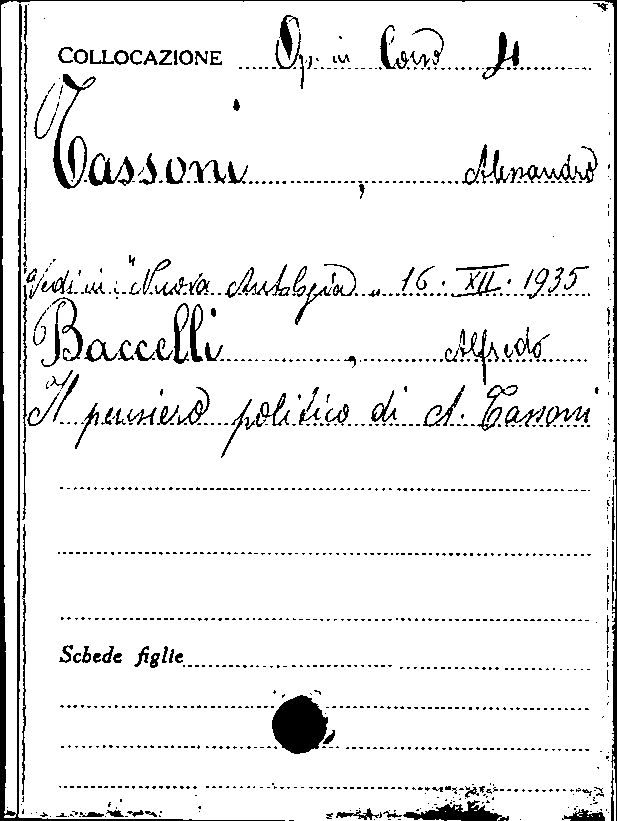 COLLOCAZIONE Op. in Corso 4
Tassoni, Alessandro
Vedi in: "Nuova Antologia„ 16. XII. 1935
Baccelli, Alfredo
Il pensiero politico di A. Tassoni
Schede figlie